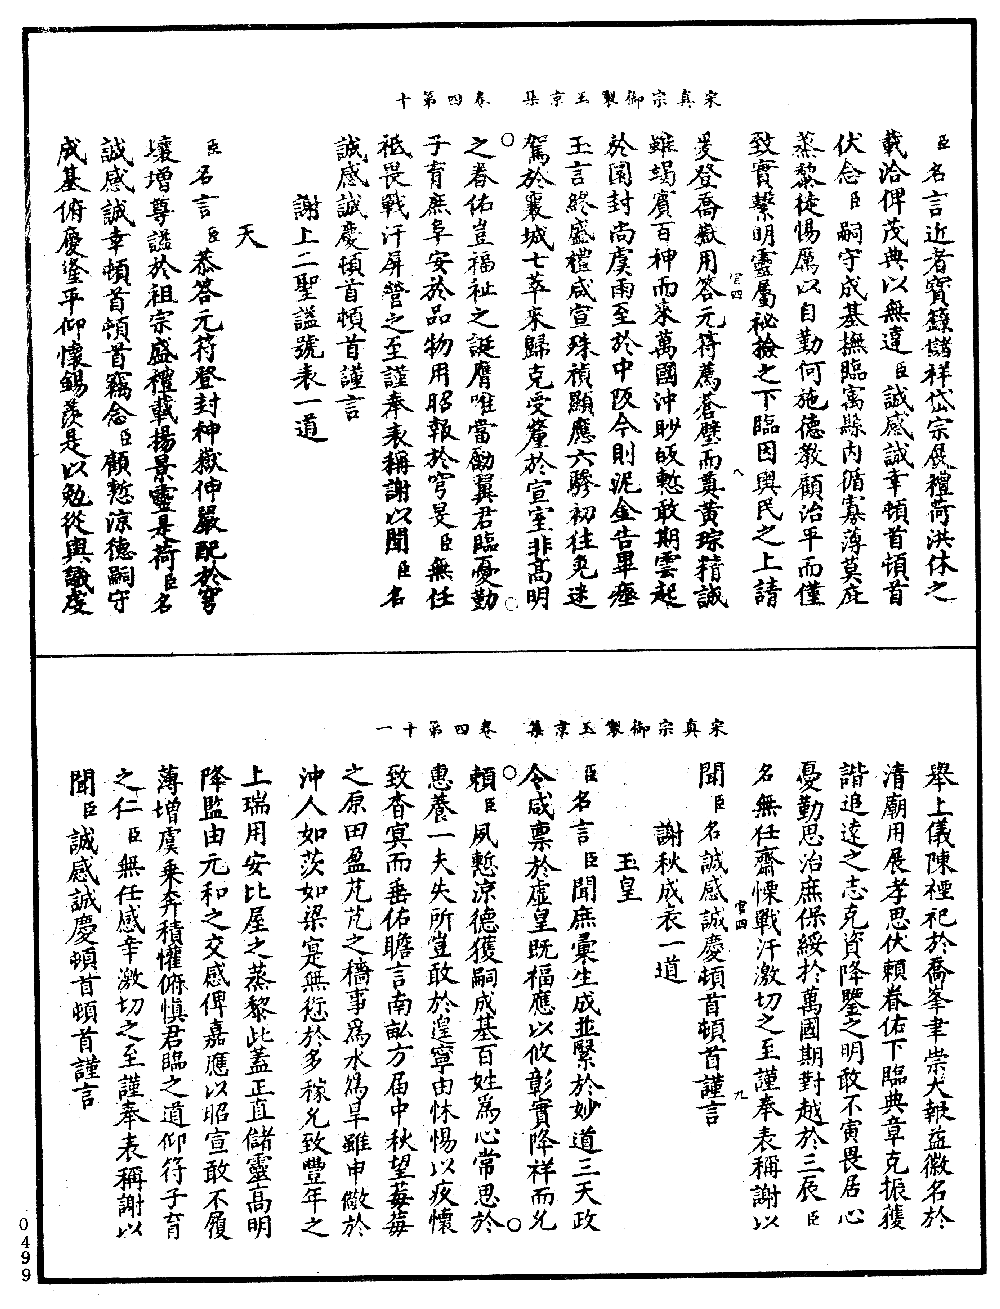 宋真宗御製玉京集　卷四第十
臣名言近者寶籙儲祥岱宗展禮荷洪休之
載洽俾茂典以無違臣誠感誠幸頓首頓首
伏念臣嗣守成基撫臨寓縣內循寡薄莫庇
蒸黎徒惕厲以自勤何施德教顧治平而僅
致實繫明靈屬祕檢之下臨因輿民之上請
爰登喬嶽用答元符薦蒼璧而奠黃琮精誠
雖竭賓百神而来萬國沖眇
於園封尚虞雨至於中阪今則泥金告畢瘞
玉言終盛禮咸宣殊禎顯應六驂初往免迷
駕於襄城七萃来歸克受釐於宣室非高明
之眷佑豈福祉之誕膺唯當勵翼君臨憂勤
子育庶阜安於品物用昭報於穹旻臣無任
祗畏戰汗屏營之至謹奉表稱謝以聞臣名
誠感誠慶頓首頓首謹言
謝上二聖謚號表一道
天
臣名言臣恭答元符登封神嶽伸嚴配於穹
壤增尊謚於祖宗盛禮載揚景靈是荷臣名
誠感誠幸頓首頓首竊念臣顧慙涼德嗣守
成基俯慶逢平仰懷錫羨是以勉從輿議虔
官四
八
宋真宗御製玉京集　卷四第十一
舉上儀陳禋祀於喬峯聿崇大報益徽名於
清廟用展孝思伏賴眷佑下臨典章克振獲
諧追遠之志克資降鑒之明敢不寅畏居心
憂勤思治庶保綏於萬國期對越於三辰臣
名無任齋慄戰汗激切之至謹奉表稱謝以
聞臣名誠感誠慶頓首頓首謹言
謝秋成表一道
玉皇
臣名言臣聞庶彙生成並繫於妙道三天政
令咸稟於虛皇既福應以攸彰實降祥而允
賴臣夙慙涼德獲嗣成基百姓為心常思於
惠養一夫失所豈敢於遑寧由怵惕以疚懷
致杳冥而垂佑瞻言南訩方屆中秋望莓莓
之原田盈芃芃之穡事為水為旱雖申儆於
沖人如茨如梁寔無愆於多稼允致豐年之
上瑞用安比屋之蒸黎此蓋正直儲靈高明
降監由元和之交感俾嘉應以昭宣敢不履
薄增虞乘奔積懼俯慎君臨之道仰符子育
之仁臣無任感幸激切之至謹奉表稱謝以
聞臣誠感誠慶頓首頓首謹言
官四
九
0499